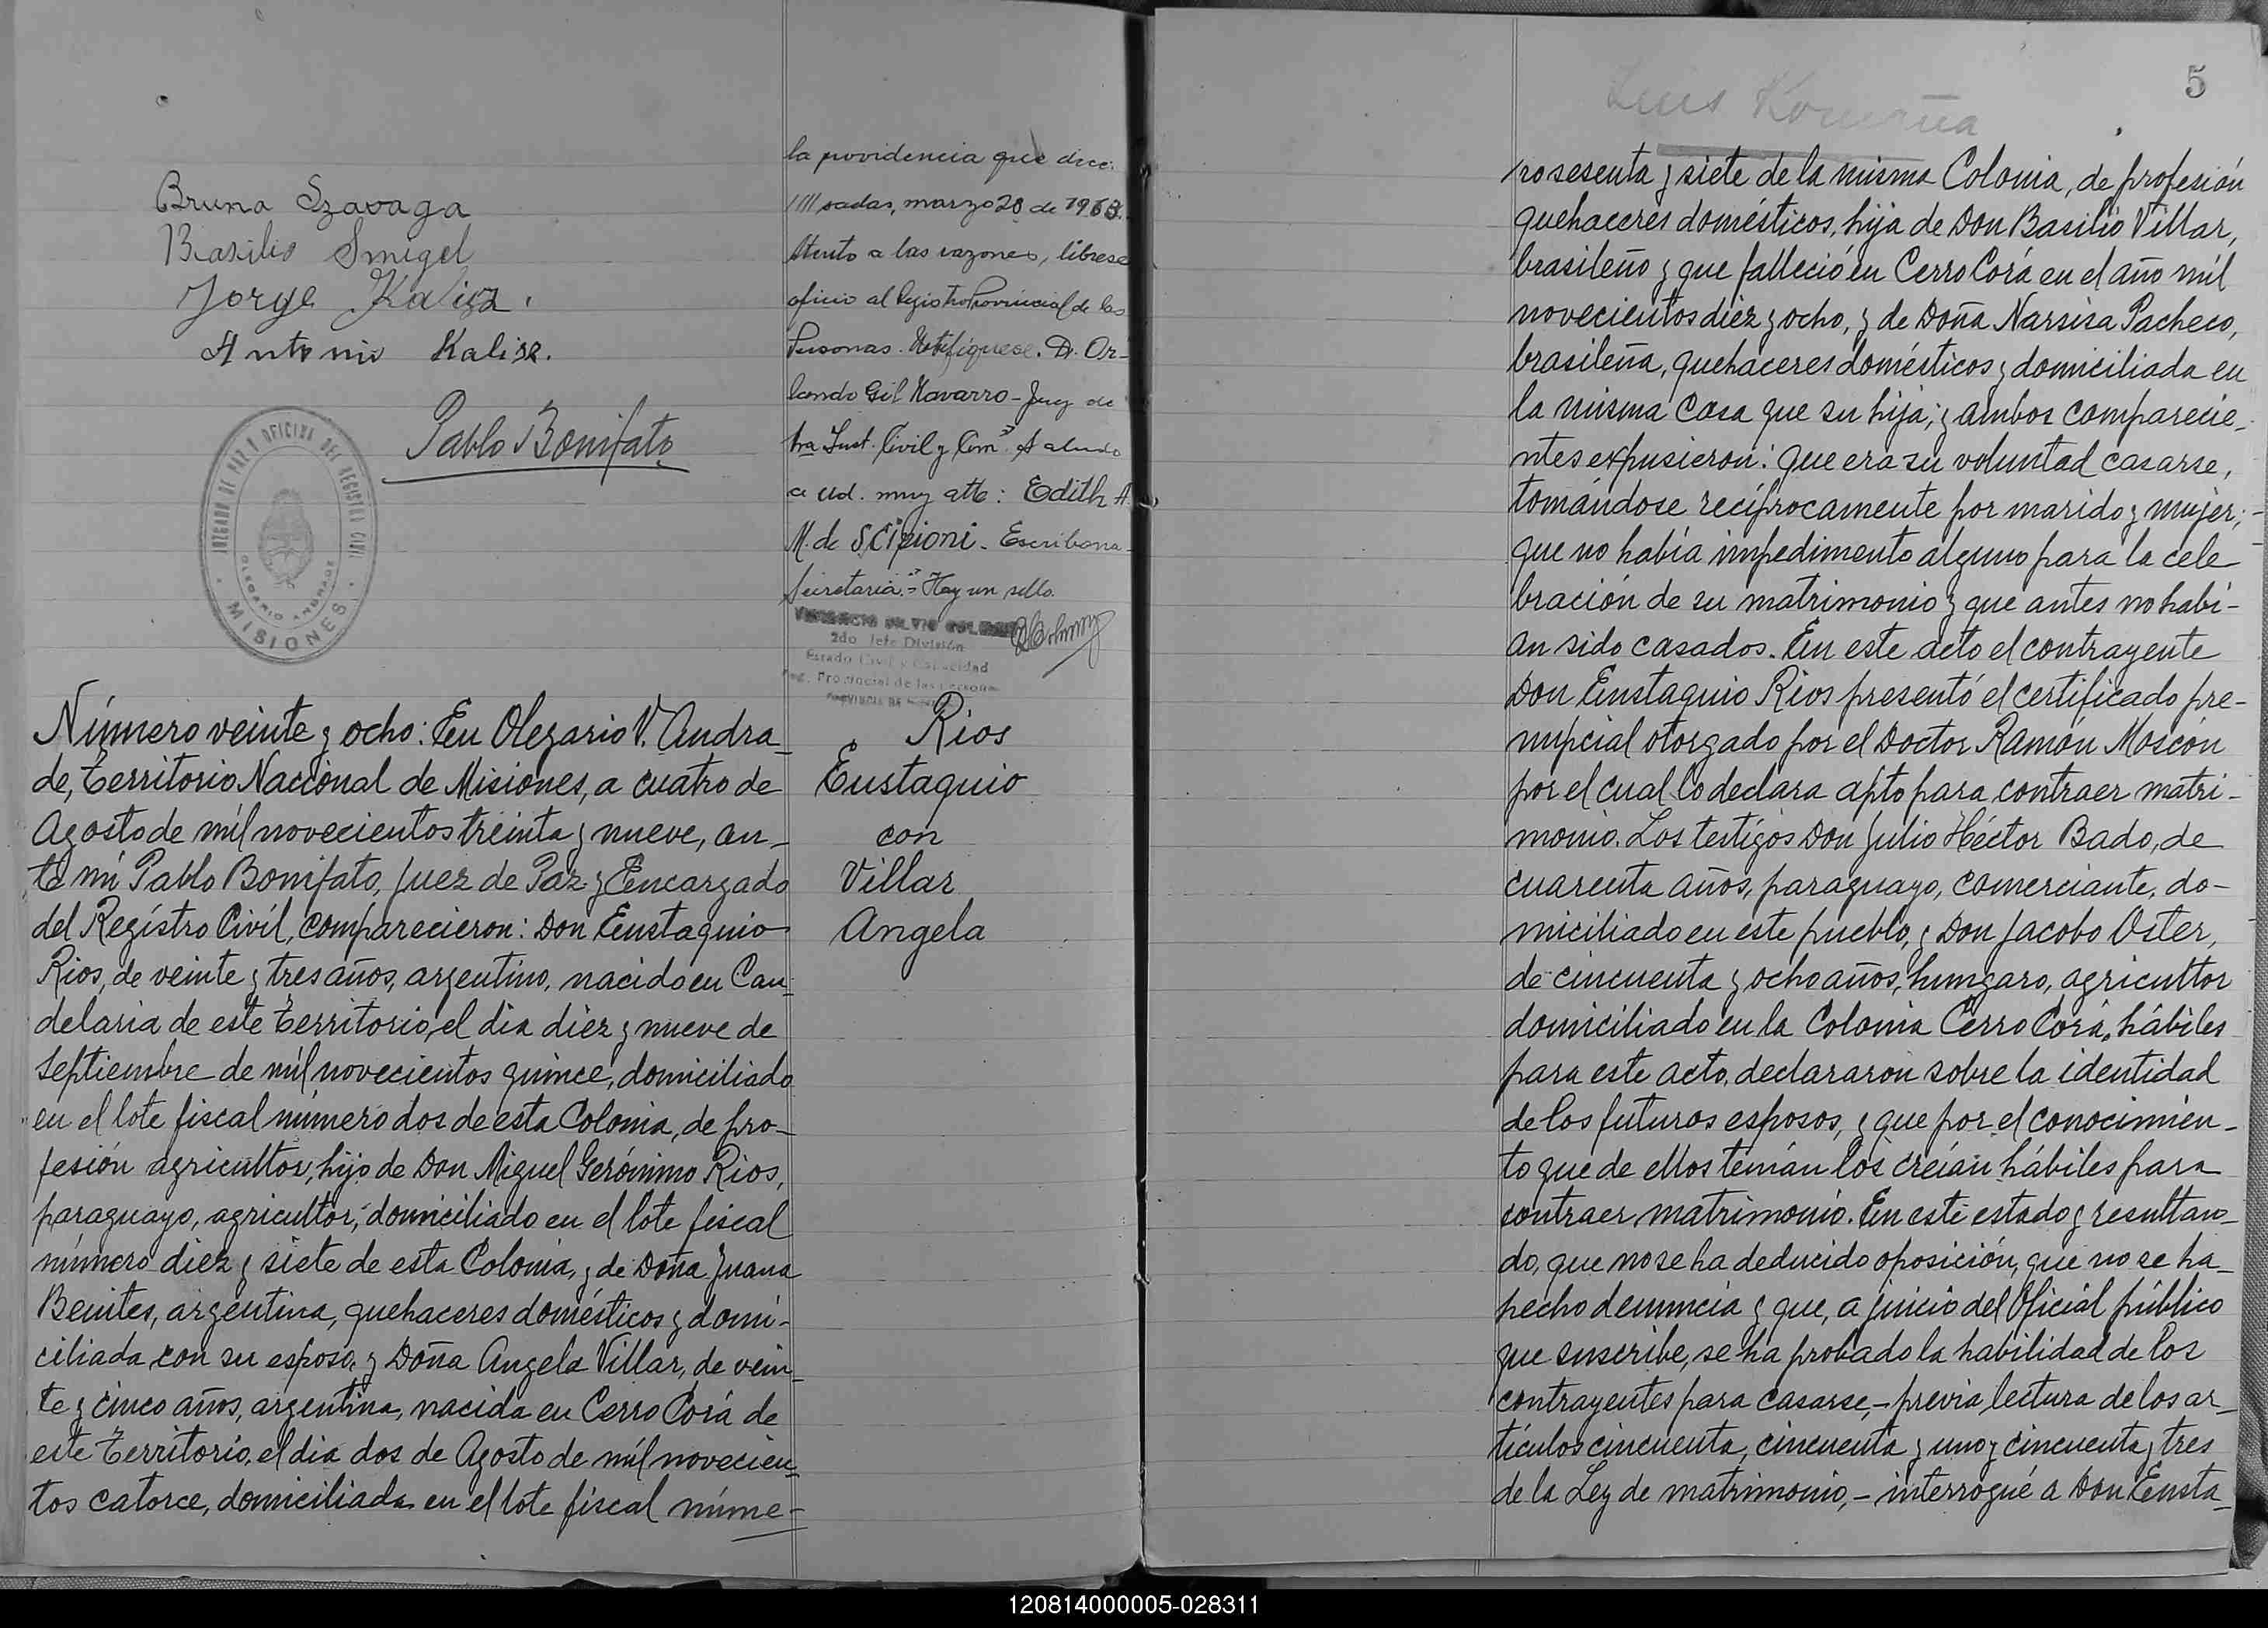 Bruna Szavaga
Basilio Smigel
Jorge Kalisz.
Antonio Kalisz.
Pablo Bonifato
JUZGADO DE PAZ Y OFICINA DEL REGISTRO CIVIL
OLEGARIO ANDRADE
MISIONES
la providencia que dice:
sadas, marzo 28 de 1968.
Atento a las razones, líbrese
oficio al Registro Provincial de las
Personas. Notifíquese. Dr. Or-
lando Gil Navarro - Juez de
1ra Inst. Civil y Com. Saludo
a Ud. muy atte: Edith A.
M. de Scipioni - Escribana
Secretaria." Hay un sello.
2do Jefe División
Estado Civil y Capacidad
Reg. Provincial de las Personas
Número veinte y ocho: En Olegario V. Andra-
de, Territorio Nacional de Misiones, a cuatro de
Agosto de mil novecientos treinta y nueve, an-
te mí Pablo Bonifato, Juez de Paz y Encargado
del Registro Civil, comparecieron: Don Eustaquio
Rios, de veinte y tres años, argentino, nacido en Can-
delaria de este territorio, el dia diez y nueve de
septiembre de mil novecientos quince, domiciliado
en el lote fiscal número dos de esta Colonia, de pro-
fesión agricultor, hijo de Don Miguel Gerónimo Rios,
paraguayo, agricultor, domiciliado en el lote fiscal
número diez y siete de esta Colonia, y de Doña Juana
Benites, argentina, quehaceres domésticos y domi-
ciliada con su esposo, y Doña Angela Villar, de vein-
te y cinco años, argentina, nacida en Cerro Corá de
este territorio, el dia dos de Agosto de mil novecien-
tos catorce, domiciliada en el lote fiscal núme-
Rios
Eustaquio
con
Villar
Angela
5
Luis
ro sesenta y siete de la misma Colonia, de profesión
quehaceres domésticos, hija de Don Basilio Villar,
brasileño y que falleció en Cerro Corá en el año mil
novecientos diez y ocho, y de Doña Narsisa Pacheco,
brasileña, quehaceres domésticos y domiciliada en
la misma casa que su hija; y ambos comparecie-
ntes expusieron: que era su voluntad casarse,
tomándose recíprocamente por marido y mujer;
que no había impedimento alguno para la cele
bración de su matrimonio y que antes no habí-
an sido casados. En este acto el contrayente
Don Eustaquio Rios presentó el certificado pre-
nupcial otorgado por el Doctor Ramón Moscón
por el cual lo declara apto para contraer matri-
monio. Los testigos Don Julio Héctor Bado, de
cuarenta años, paraguayo, comerciante, do-
miciliado en este pueblo, y Don Jacobo Oster,
de cincuenta y ocho años, hungaro, agricultor
domiciliado en la Colonia Cerro Corá, hábiles
para este acto, declararon sobre la identidad
de los futuros esposos, y que por el conocimien-
to que de ellos tenían los creían hábiles para
contraer matrimonio. En este estado y resultan-
do, que no se ha deducido oposición, que no se ha
hecho denuncia y que, a juicio del Oficial público
que suscribe, se ha probado la habilidad de los
contrayentes para casarse,- previa lectura de los ar-
tículos cincuenta, cincuenta y uno y cincuenta y tres
de la Ley de matrimonio,- interrogué a Don Eusta-
120814000005-028311